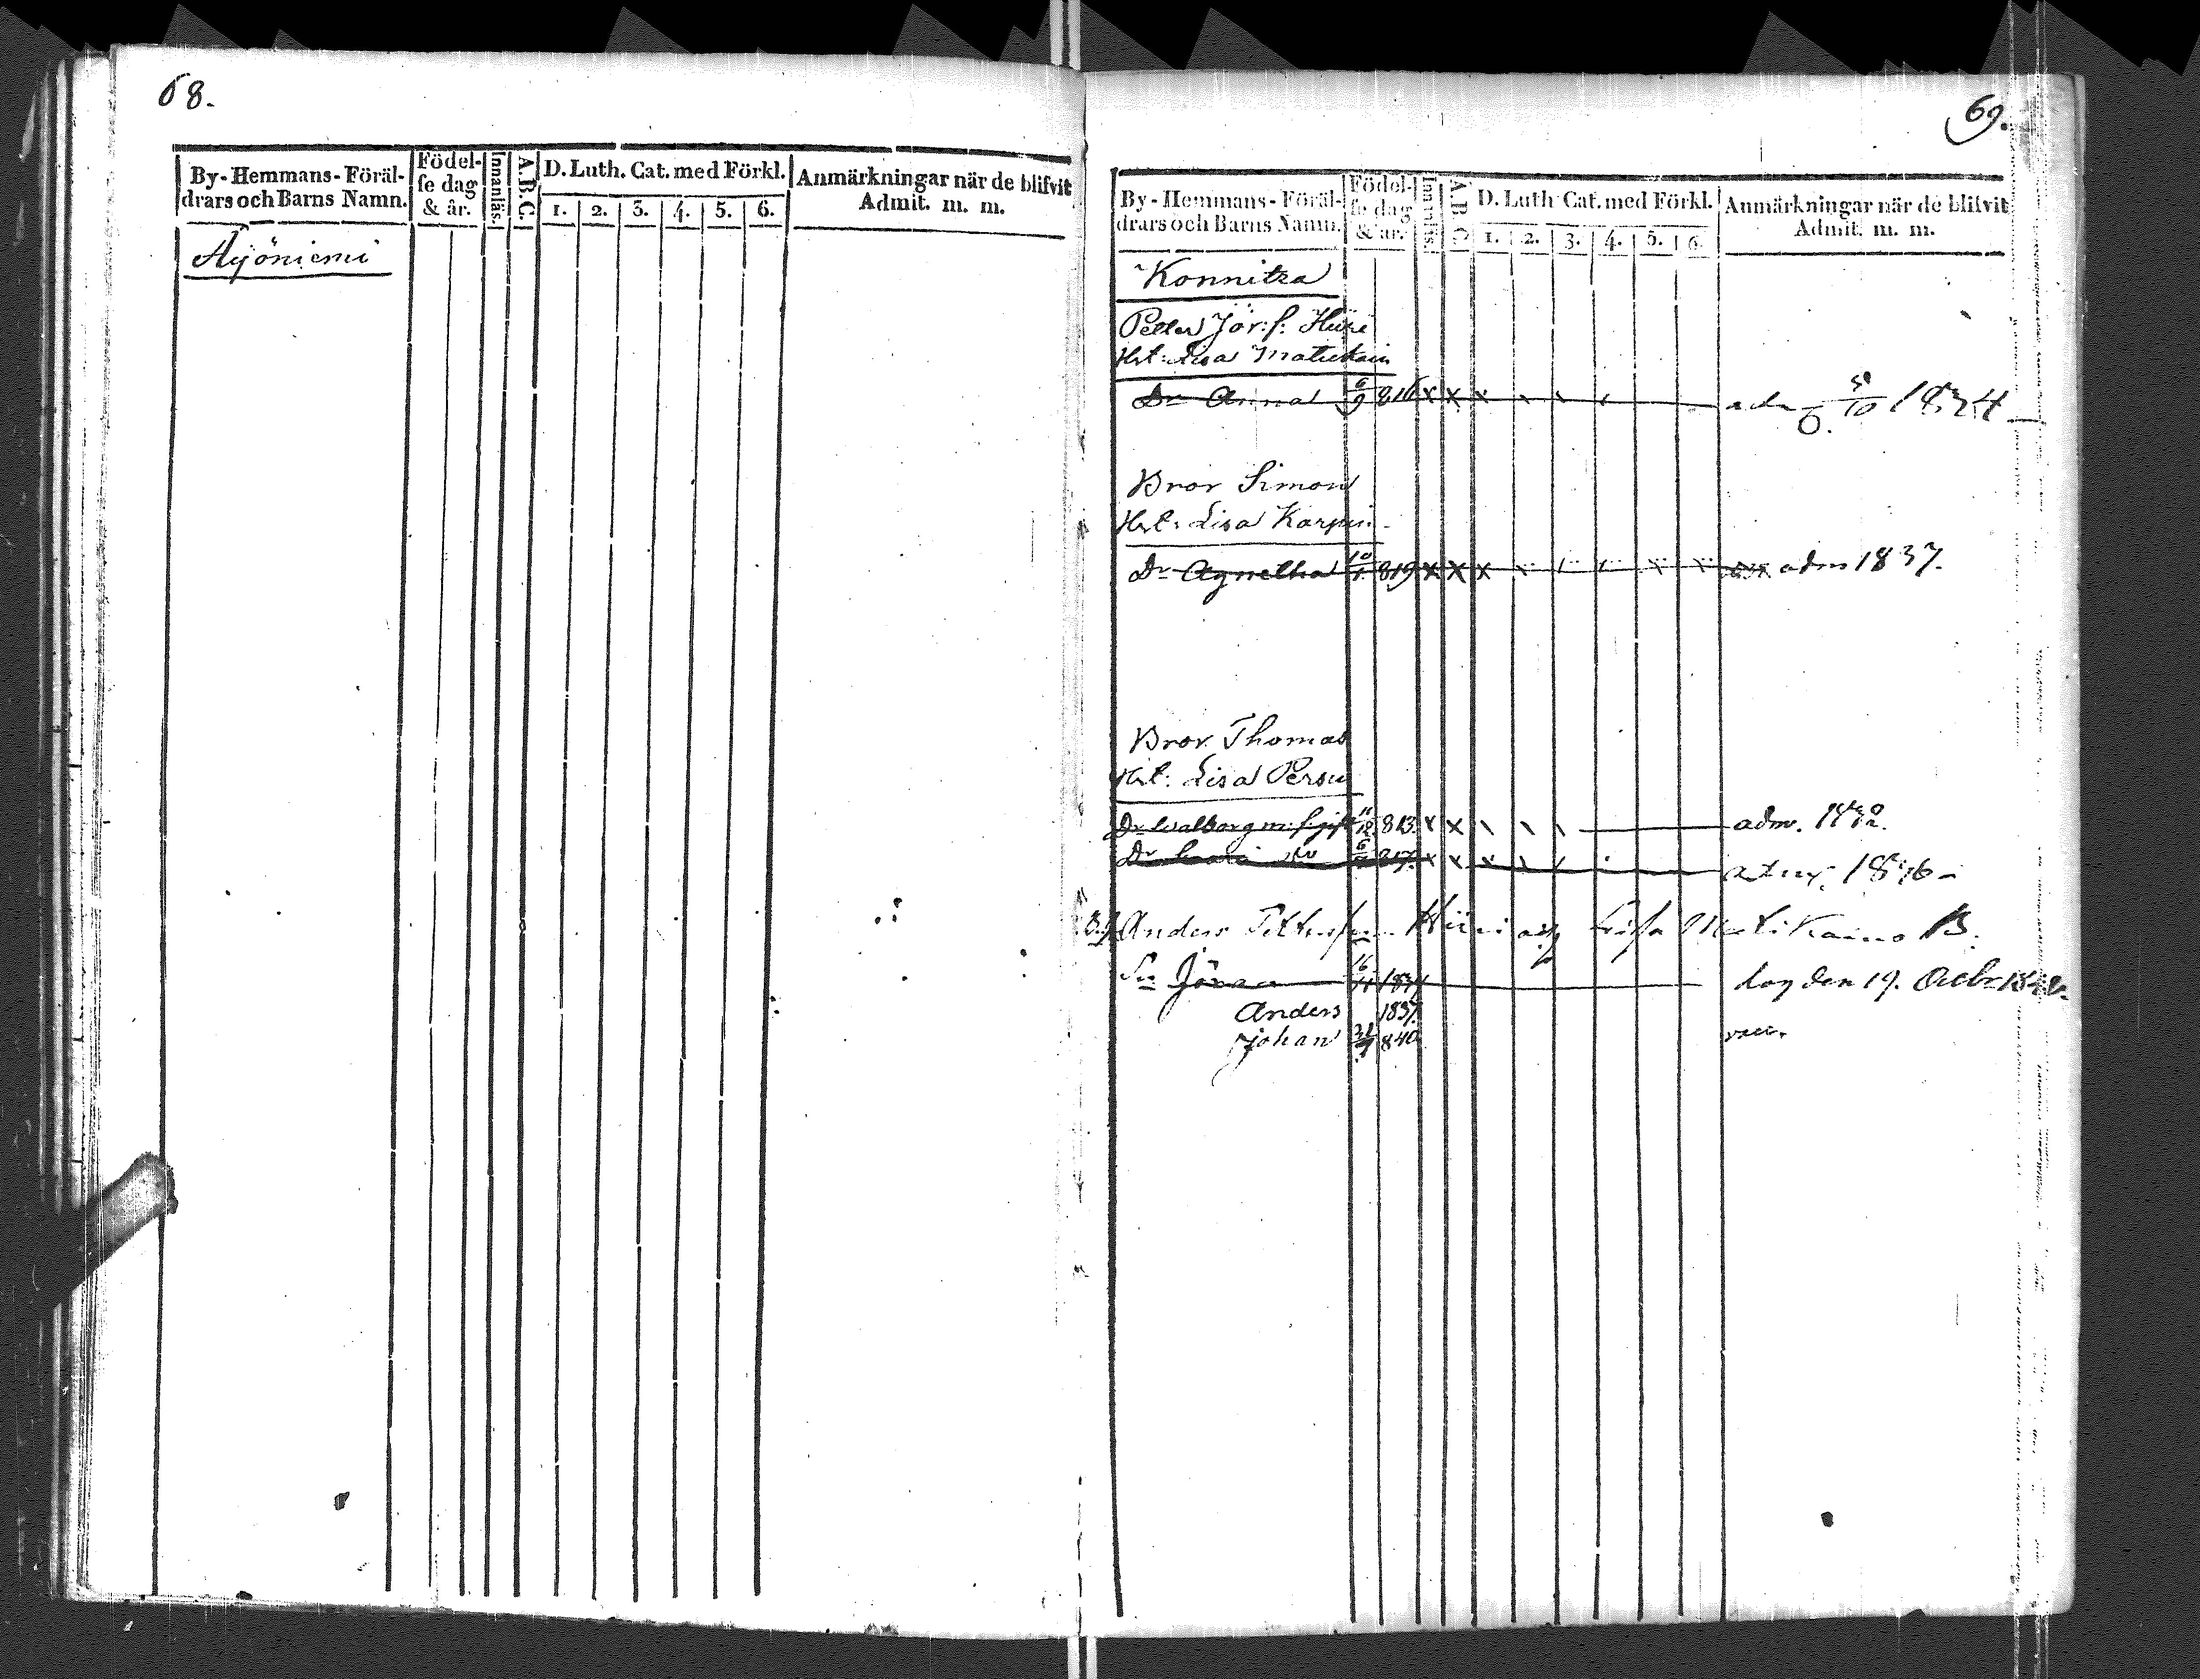 68.
By-Hemmans-Föräl-
drars och Barns Namn.
Födel-
se dag
& år.
Innanläs.
A.B.C.
D. Luth. Cat. med Förkl.
1. 2. 3. 4. 5. 6.
Anmärkningar när de blifvit
Admit. m. m.
Äijöniemi
69.
By-Hemmans-Föräl-
drars och Barns Namn.
Födel-
se dag
& år.
Innanläs.
A.B.C.
D. Luth. Cat. med Förkl.
1. 2. 3. 4. 5. 6.
Anmärkningar när de blifvit
Admit. m. m.
Konnitza
Petter Jör:s: Hüri
Hst: Lisa Matiskain
Dr Anna 6/9 816 x x x 1834
Bror Simon
Hst: Lisa Karpin
Dr Agnetha 10/1 819 x x x adm 1837.
Bror Thomas
Hst: Lisa Persu
Dr Walborg 813. x x adm.
Dr 817. x x x
Anders Lisa B.
Sn Jöran 16/11 den 19.
Anders 1837.
Johan 840